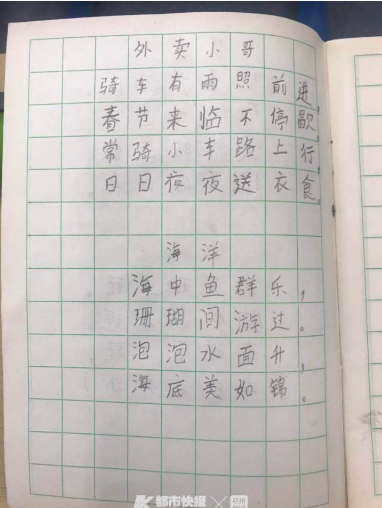 外卖小哥
骑车有雨照前进，
春节来临不停歇。
常骑小车路上行，
日日夜夜送衣食。
海洋
海中鱼群乐，
珊瑚间游过。
泡泡水面升，
海底美如锦。
都市快报
杭州